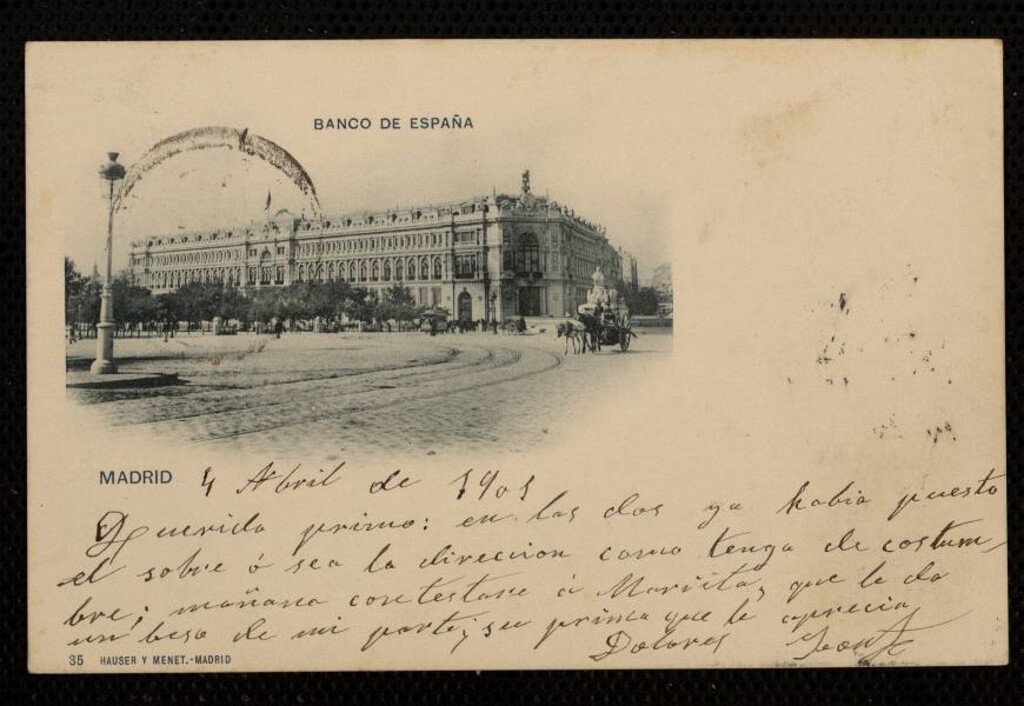 BANCO DE ESPAÑA
MADRID 4 Abril de 1901
Querido primo: en las dos ya habia puesto
el sobre ó sea la direccion como tengo de costum
bre; mañana contestare á Mariita, que le da
un beso de mi parte; su prima que le aprecia
Dolores
35 HAUSER Y MENET.-MADRID